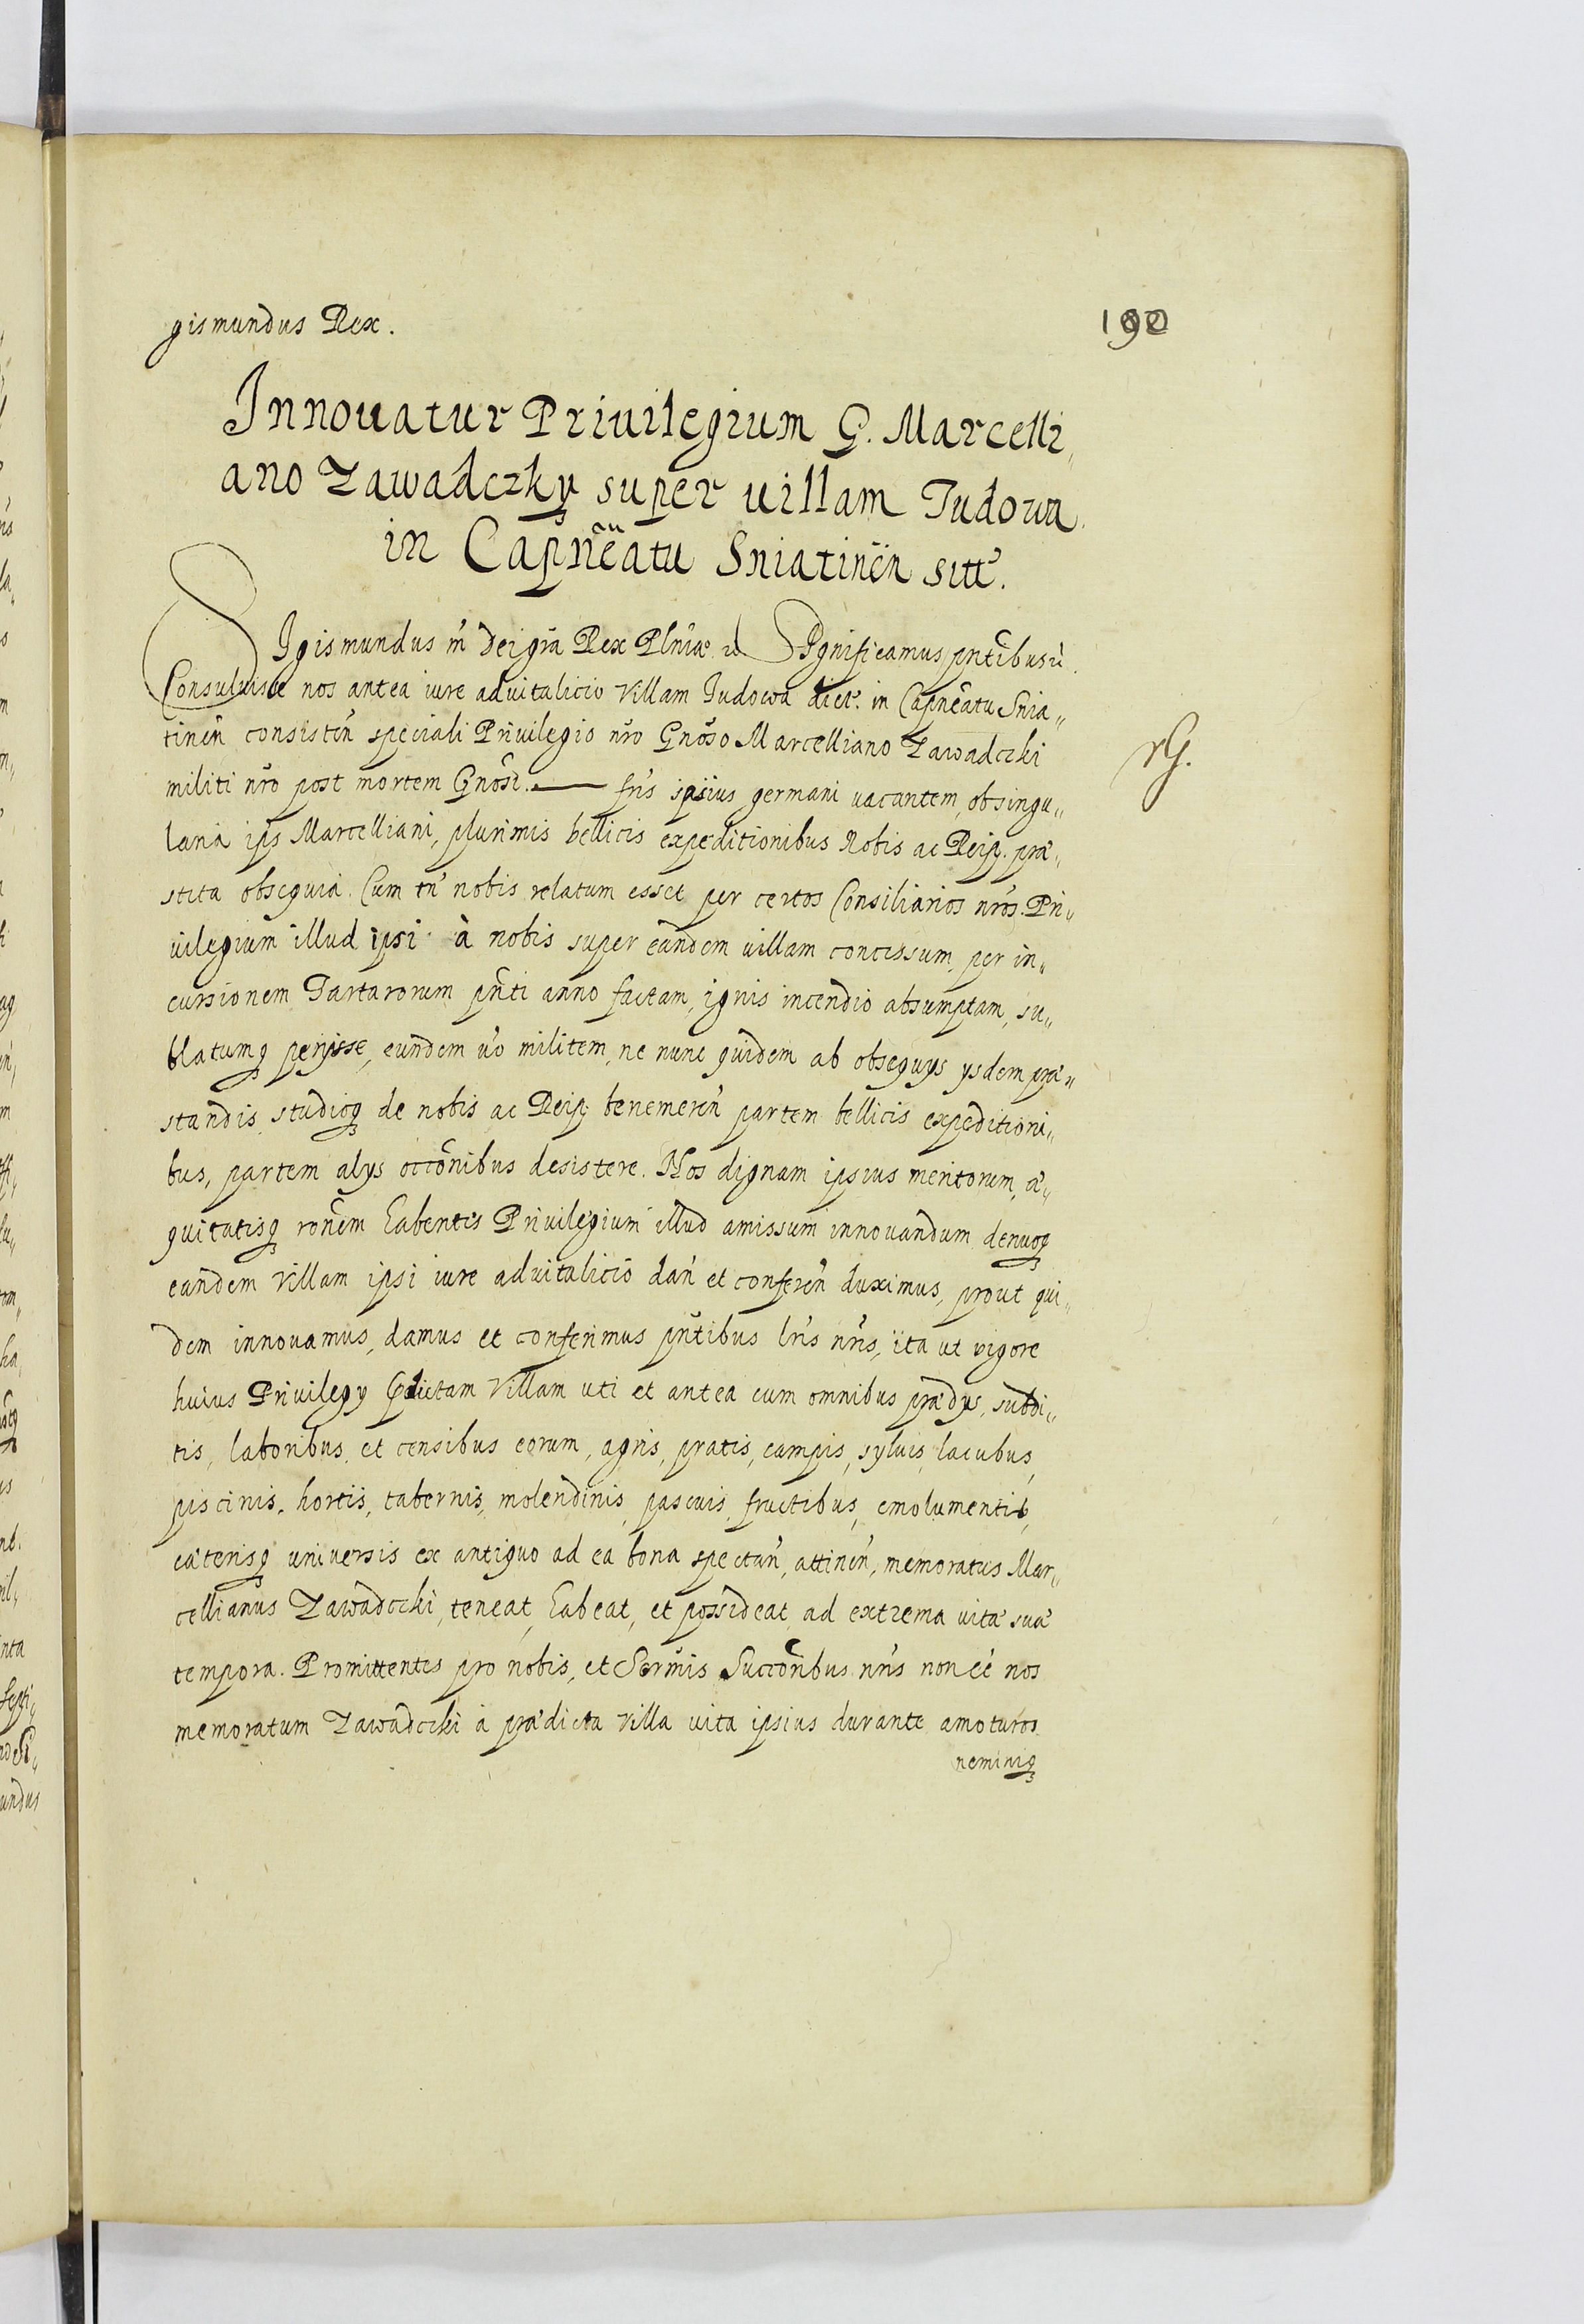 gismundus Rex.
190
Innouatur Priuilegium G. Marcelli,,
ano Zawadczky super uillam Tudowa
in Capnẽatu Sniatinẽn sitt.
SIgismundus m̃ Dei gr̃a Rex Plniæ Significamus pntibus
Consuluisse nos antea iure aduitalicio Villam Tudowa dict. in Capneatu Snia,,
tinen̄ consisten̄ speciali Priuilegio nr̄o Gnōso Marcelliano Zawadczki
rG.
militi nr̄o post mortem Gnōsi. —— fris ipsius germani uacantem, ob singu,,
laria ips Marcelliani, plurimis bellicis expeditionibus Nobis ac Reip. præ,,
stita obsequia. Cum tn̄ nobis relatum esset per certos Consiliarios nr̄os. Pri,,
uilegium illud ipsi à nobis super eandem uillam concessum, per in,,
cursionem Tartarorum pn̄ti anno factam, ignis incendio absumptam, su,,
blatumq̨ perysse, eundem uo militem, ne nunc quidem ab obsequys ysdem præ,,
standis, studioq̨ de nobis ac Reip. benemeren̄ partem bellicis expeditioni,,
bus, partem alys occōnibus desistere. Nos dignam ipsius meritorum, æ,,
quitatisq̨ ronem habentes Priuilegium illud amissum innouandum denuoq̨
eandem Villam ipsi iure aduitalicio dan̄ et conferen̄ duximus, prout qui,,
dem innouamus, damus et conferimus pn̄tibus lr̄is nr̄is, ita ut vigore
huius Priuilegy pdictam Villam uti et antea cum omnibus prædys, subdi,,
tis, laboribus, et censibus eorum, agris, pratis, campis, syluis, lacubus,
piscinis, hortis, tabernis, molendinis, pascuis, fructibus, emolumentis,
cæterisq̨ uniuersis ex antiquo ad ea bona spectan̄, attinen̄, memoratus Mar,,
cellianus Zawadczki, teneat, habeat, et possideat, ad extrema uitæ suæ
tempora. Promittentes pro nobis, et Sermis Succōribus nr̄is non eē nos
memoratum Zawadczki à prædicta Villa uita ipsius durante amoturos
neminiq̨